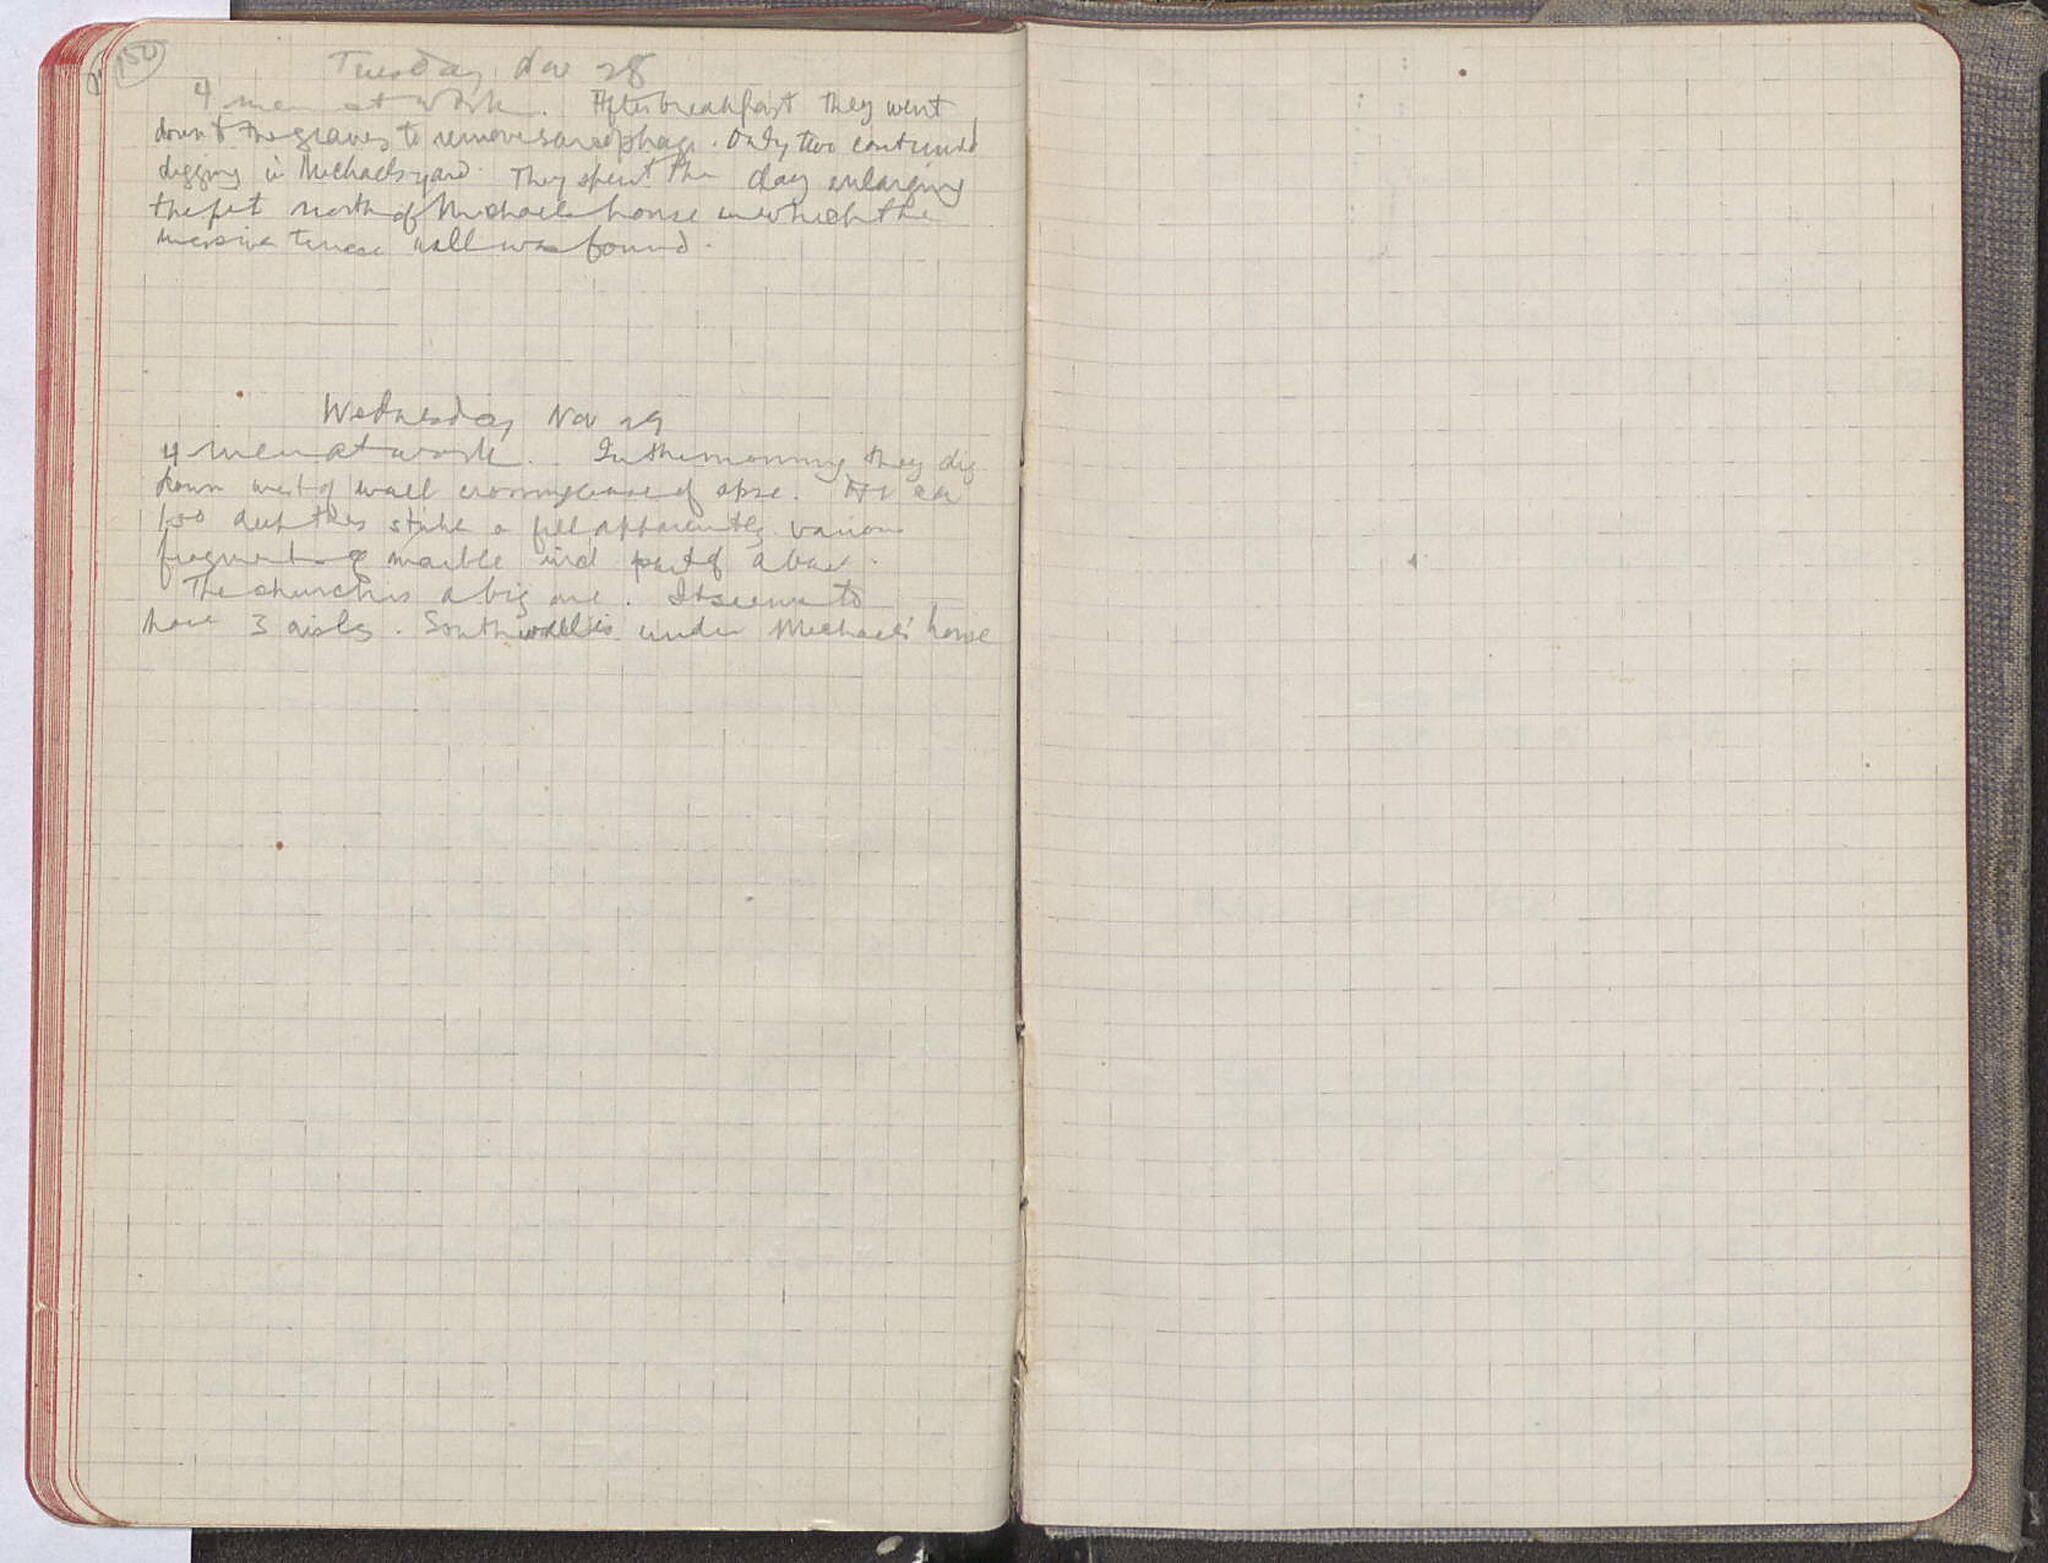 150
Tuesday Nov 28
4 men at work. After breakfast they went
down to the graves to remove sarcophagi. Only two continued
digging in Michaels yard. They spent the day enlarging
the pit north of Michaels house in which the
massive terrace wall was found.
Wednesday Nov 29
4 men at work. In the morning they dig
down west of wall crossing base of apse. At ca
1.50 deep they strike a fill apparently various
fragments of marble incl part of a base.
The church is a big one. It seems to
have 3 aisles. South wall is under Michaels' house